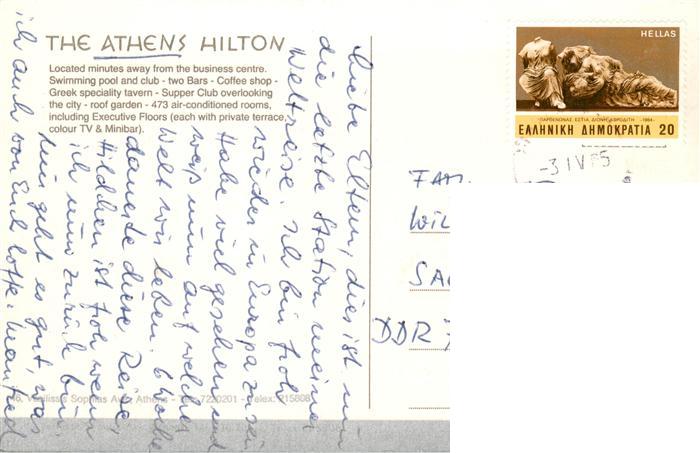 THE ATHENS HILTON
Located minutes away from the business centre.
Swimming pool and club - two Bars - Coffee shop -
Greek speciality tavern - Supper Club overlooking
the city - roof garden - 473 air-conditioned rooms,
including Executive Floors (each with private terrace,
colour TV & Minibar).
Liebe Eltern, dies ist nun
die letzte Station meiner
Weltreise. Ich bin froh
wieder in Europa zu sein
Habe viel gesehen und
weiß nun auf welcher
Welt wir leben. 6 Woche
dauerte diese Reise,
Hildchen ist froh wenn
ich nun zurück bin.
Mir geht es gut, was
ich auch von Euch hoffe. Manfred
46, Vasilissis Sophias Ave., Athens - Tel: 7220201 - Telex: 215808
HELLAS
ΠΑΡΘΕΝΩΝΑΣ ΕΣΤΙΑ, ΔΙΩΝΗ, ΑΦΡΟΔΙΤΗ -1984-
ΕΛΛΗΝΙΚΗ ΔΗΜΟΚΡΑΤΙΑ 20
-3 IV 85
FAM.
WIL
SA
DDR